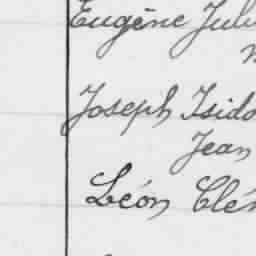 Eugène Jul
Joseph Isido
Jean
Léon Clé